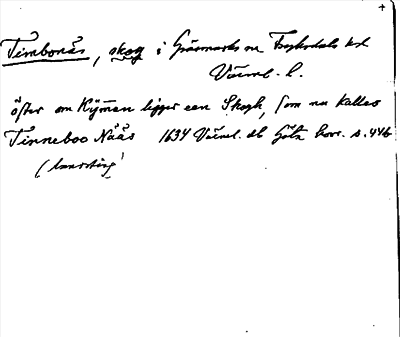 Timbonäs, skog i Gräsmarks sn Fryksdals hd
Värml. l.
öster om Kÿmen ligger een Skogh, som nu kalles
Tinneboo Nääs 1634 Värml. ab Götz korr. s. 446